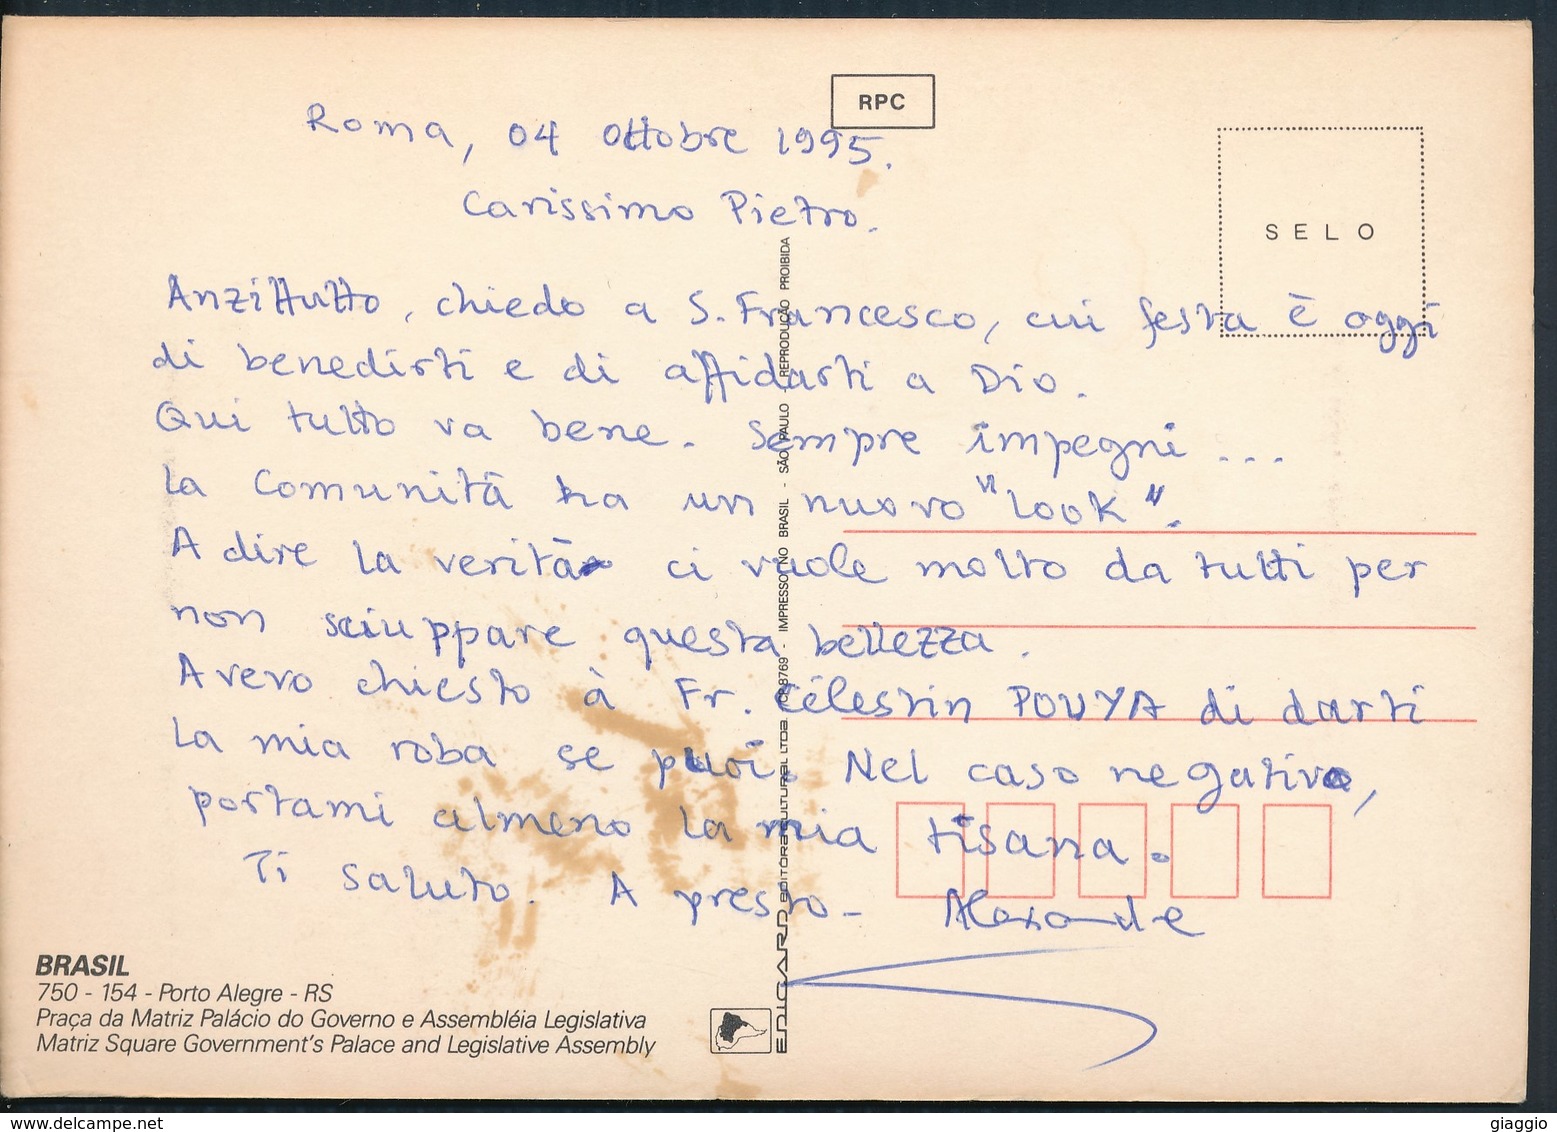 RPC
SELO
Roma, 04 ottobre 1995.
Carissimo Pietro.
Anzittutto, chiedo a S. Francesco, cui festa è oggi
di benedirti e di affidarti a Dio.
Qui tutto va bene. Sempre impegni ...
La Comunità ha un nuovo "look".
A dire la verità ci vuole molto da tutti per
non sciuppare questa bellezza.
Avevo chiesto à Fr. Célestin POUYA di darti
la mia roba se puoi. Nel caso negativo,
portami almeno la mia tisana.
Ti saluto. A presto-
BRASIL
750 - 154 - Porto Alegre - RS
Praça da Matriz Palácio do Governo e Assembléia Legislativa
Matriz Square Government's Palace and Legislative Assembly
EDICARD EDITORA CULTURAL LTDA. CP 8769 - IMPRESSO NO BRASIL - SÃO PAULO - REPRODUÇÃO PROIBIDA
www.delcampe.net
giaggio